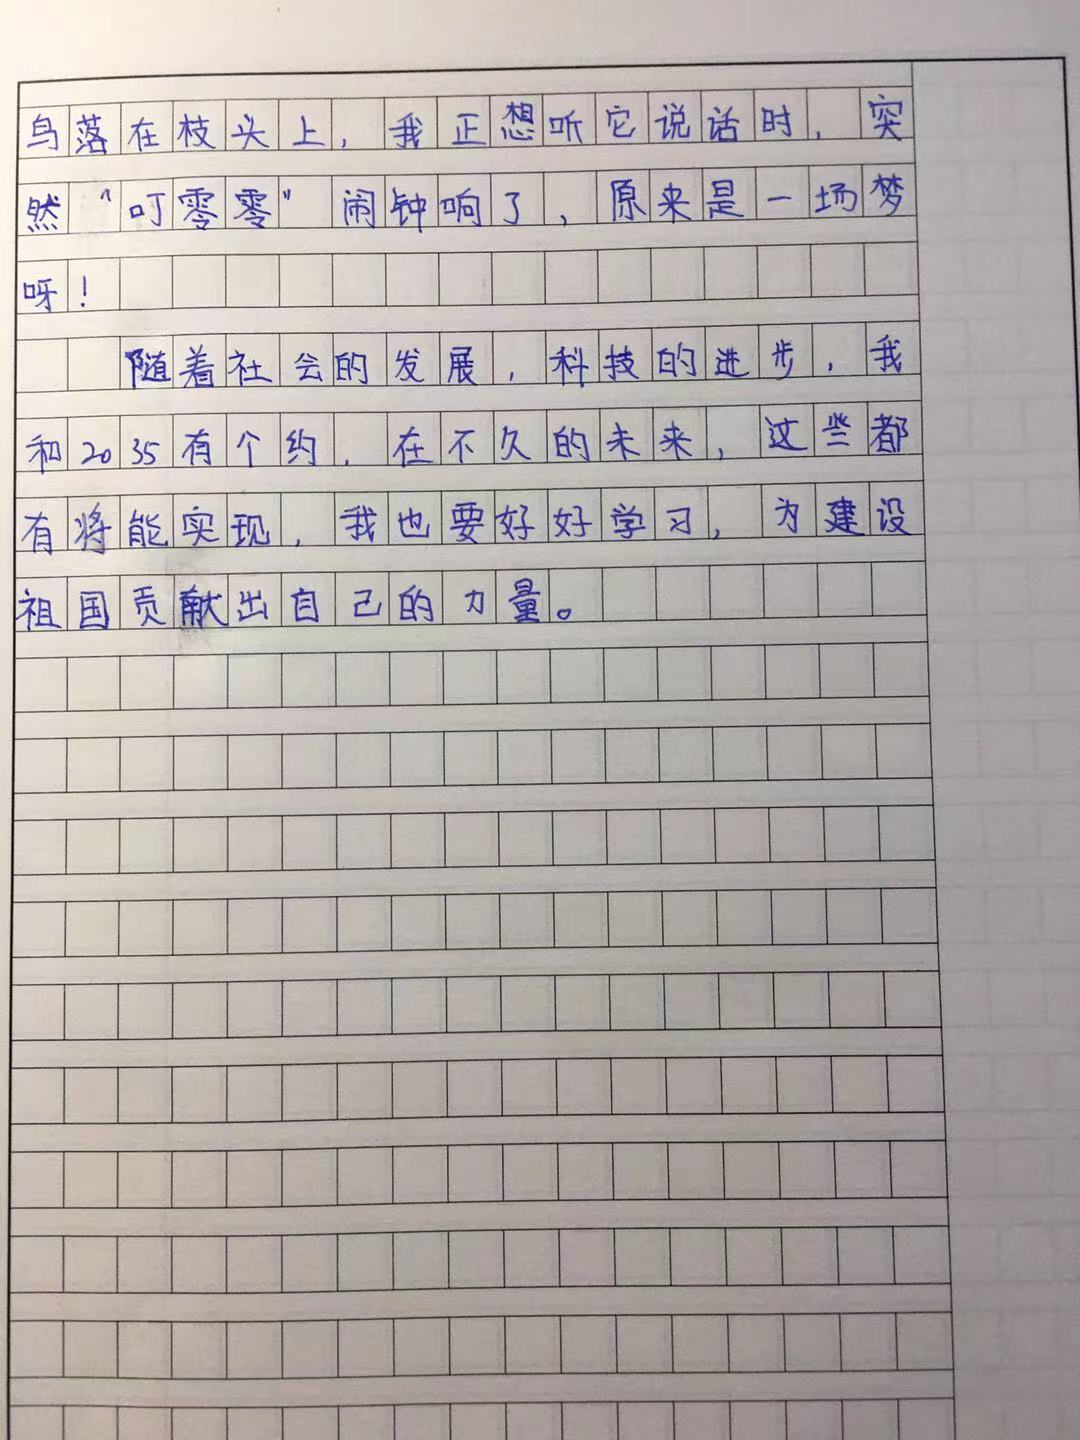 鸟落在枝头上，我正想听它说话时，突
然“叮零零”闹钟响了，原来是一场梦
呀！
随着社会的发展，科技的进步，我
和2035有个约，在不久的未来，这些都
有将能实现，我也要好好学习，为建设
祖国贡献出自己的力量。